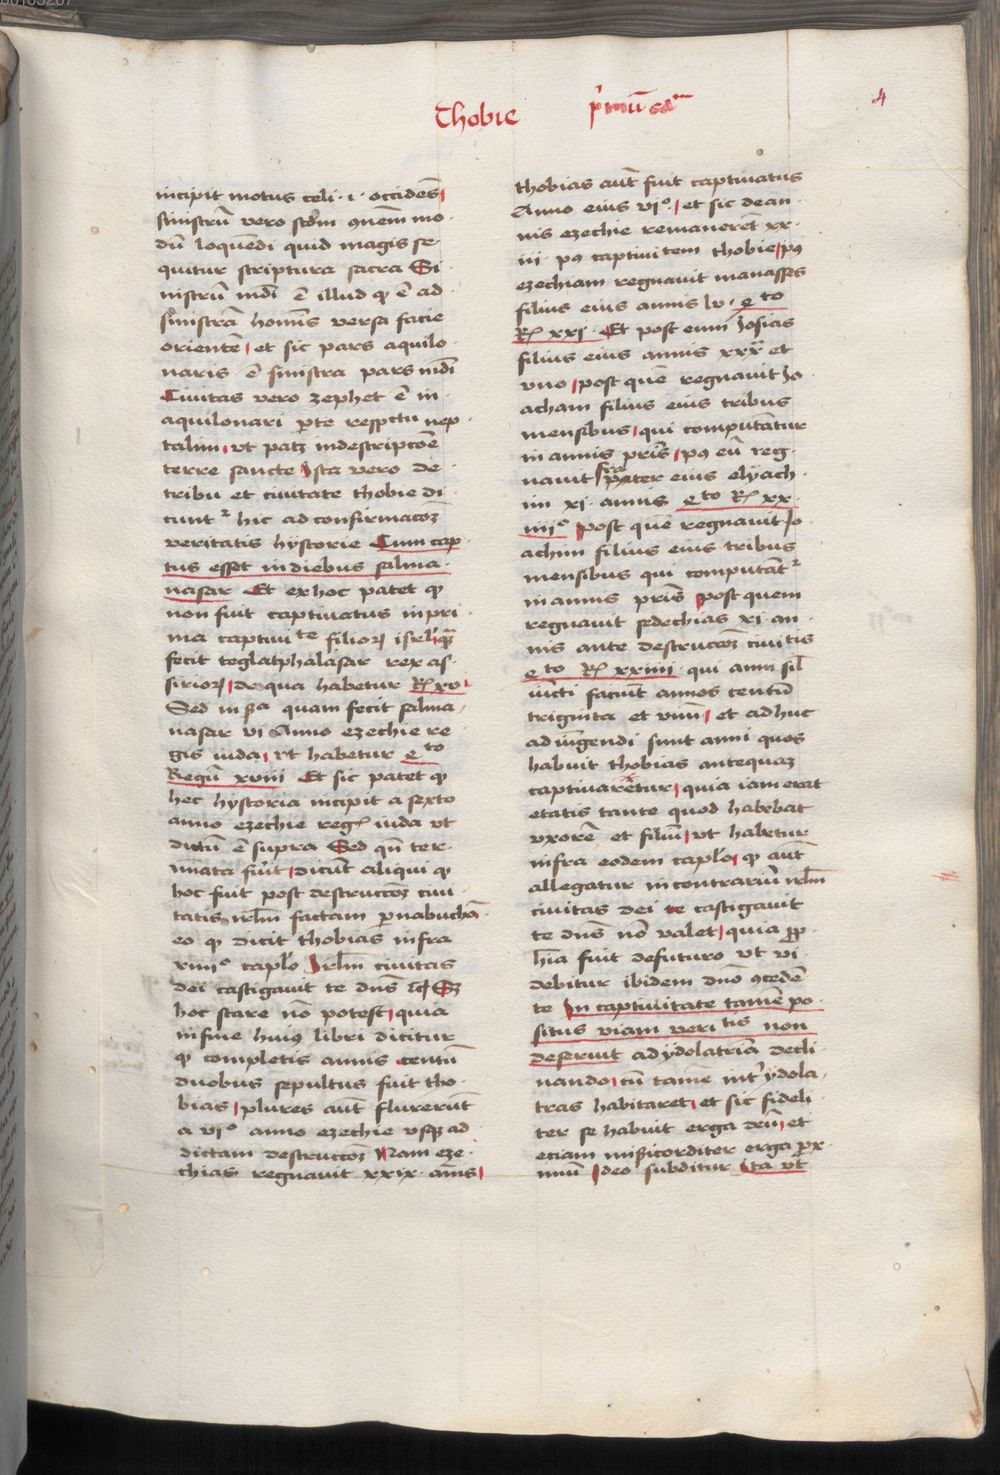 Thobie primū ca^m
4
incipit motus celi · i · occidēs
sinistrū vero scd̄m q̄uēm mo
dū loquēdi quid magis se
quitur scriptura sacra Si
nistrū mdī ē illud qͥ ē ad
sinistrā homīs versa facie
orientē et sic pars aquilo
naris ē sinistra pars mdī
Ciuitas vero zephet ē in
aquilonari p̄te respctu nep
talim vt patꝫ indescripcōe
terre sancte Ista vero de
tribu et ciuitate thobie di
cunt᷑ hic ad confirmacōꝫ
veritatis hystorie Cum cap
tus esset indiebus salma
nasar Et ex hoc patet qͥ
non fuit captiuatus in pri
ma captiuite filioꝝ isrl̄ quā
fecit teglatphalasar rex as
sirioꝝ de qua habetur Rͫ xv
Sed in sͣa quam fecit salma
nasar vi Anno ezechie re
gis iuda vt habetur 4^to
Regū xviii Et sic patet qͥ
hec hystoria incipit a sexto
anno ezechie regꝭ iuda vt
dictū ē supra Sed qn̄ ter
mīata fuit dicūt aliqui qͥ
hoc fuit post destruccōꝫ ciui
tatis irl̄m factam p nabuchō
eo qͥ dicit thobias infra
xiiiº caplō Irl̄m ciuitas
dei castigauit te dn̄s ꝛc̄ Sꝫ
hoc stare nō potest quia
in fine huiꝰ libri dicitur
qͥ completis annis centū
duobus sepultus fuit tho
bias plures aūt fluxerūt
a viº anno ezechie vsqꝫ ad
dictam destruccōꝫ Nam eze
chias regnauit xxix · ānis
thobias aūt fuit captiuatus
Anno eius viº et sic de an
nis ezechie remanerēt xx
iii · pꝰ captiuitem thobie pꝰ
ezechiam regnauit manasses
filius eius annis lv · 4 to
Rͫ xxi · Et post eum Iosias
filius eius annis xxx^a et
vno post quē regnauit Io
acham filius eius tribus
mensibus qui computātur
in annis pr̄is pꝰ eū reg
nauit frater eius elyach
im xi · annis 4 to Rͫ xx
iiiº Post quē regnauit Io
achim filius eius tribus
mensibus qui computāt᷑
in annis pr̄is post quem
regnauit sedechias xi an
nis ante destruccōꝫ ciuitis
4 to Rͫ xxiiii · qui anni sil̄
iūcti faciūt annos centū
triginta et vnū et adhuc
adiūgendi sunt anni quos
habuit thobias antequaꝫ
captiuaretur quia iam erat
etatis tante quod habebat
vxorē et filiū vt habetur
infra eodem caplō qͥ aūt
allegatur in contrariū irl̄m
ciuitas dei te castigauit
te dn̄s nō valet quia pͥp
hīa fuit defuturo vt vi
debitur ibidem dn̄o ꝯcedē
te In captiuitate tamē po
situs viam veritis non
deseruit ad ydolatriā decli
nando cū tamē int᷑ ydola
tras habitaret et sic fideli
ter se habuit erga deū et
eciam mīsicorditer erga prox
imū Ideo subditur Ita vt